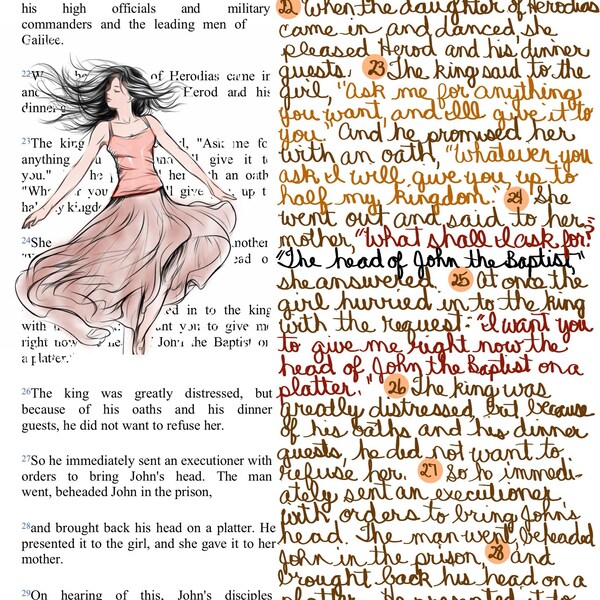 his high officials and military
commanders and the leading men of
Galilee.
22W of Herodias came in
and Herod and his
dinner g
23The king d, "Ask me fo
anything you will give it to
you." he p her h an oath
"Wha you ll give up t
hal y kingdo
24She mother
ead o
ed in to the king
with nt you to give me
right now he John the Baptist on
a platter."
26The king was greatly distressed, but
because of his oaths and his dinner
guests, he did not want to refuse her.
27So he immediately sent an executioner with
orders to bring John's head. The man
went, beheaded John in the prison,
28and brought back his head on a platter. He
presented it to the girl, and she gave it to her
mother.
29On hearing of this, John's disciples
22 When the daughter of Herodias
came in and danced, she
pleased Herod and his dinner
guests. 23 The king said to the
girl, "Ask me for anything
you want, and I'll give it to
you." And he promised her
with an oath, "Whatever you
ask I will give you, up to
half my kingdom." 24 She
went out and said to her
mother, "What shall I ask for?"
"The head of John the Baptist,"
she answered. 25 At once the
girl hurried in to the king
with the request: "I want you
to give me right now the
head of John the Baptist on a
platter." 26 The king was
greatly distressed, but because
of his oaths and his dinner
guests, he did not want to
refuse her. 27 So he immedi-
ately sent an executioner
with orders to bring John's
head. The man went, beheaded
John in the prison 28 and
brought back his head on a
platter. He presented it to